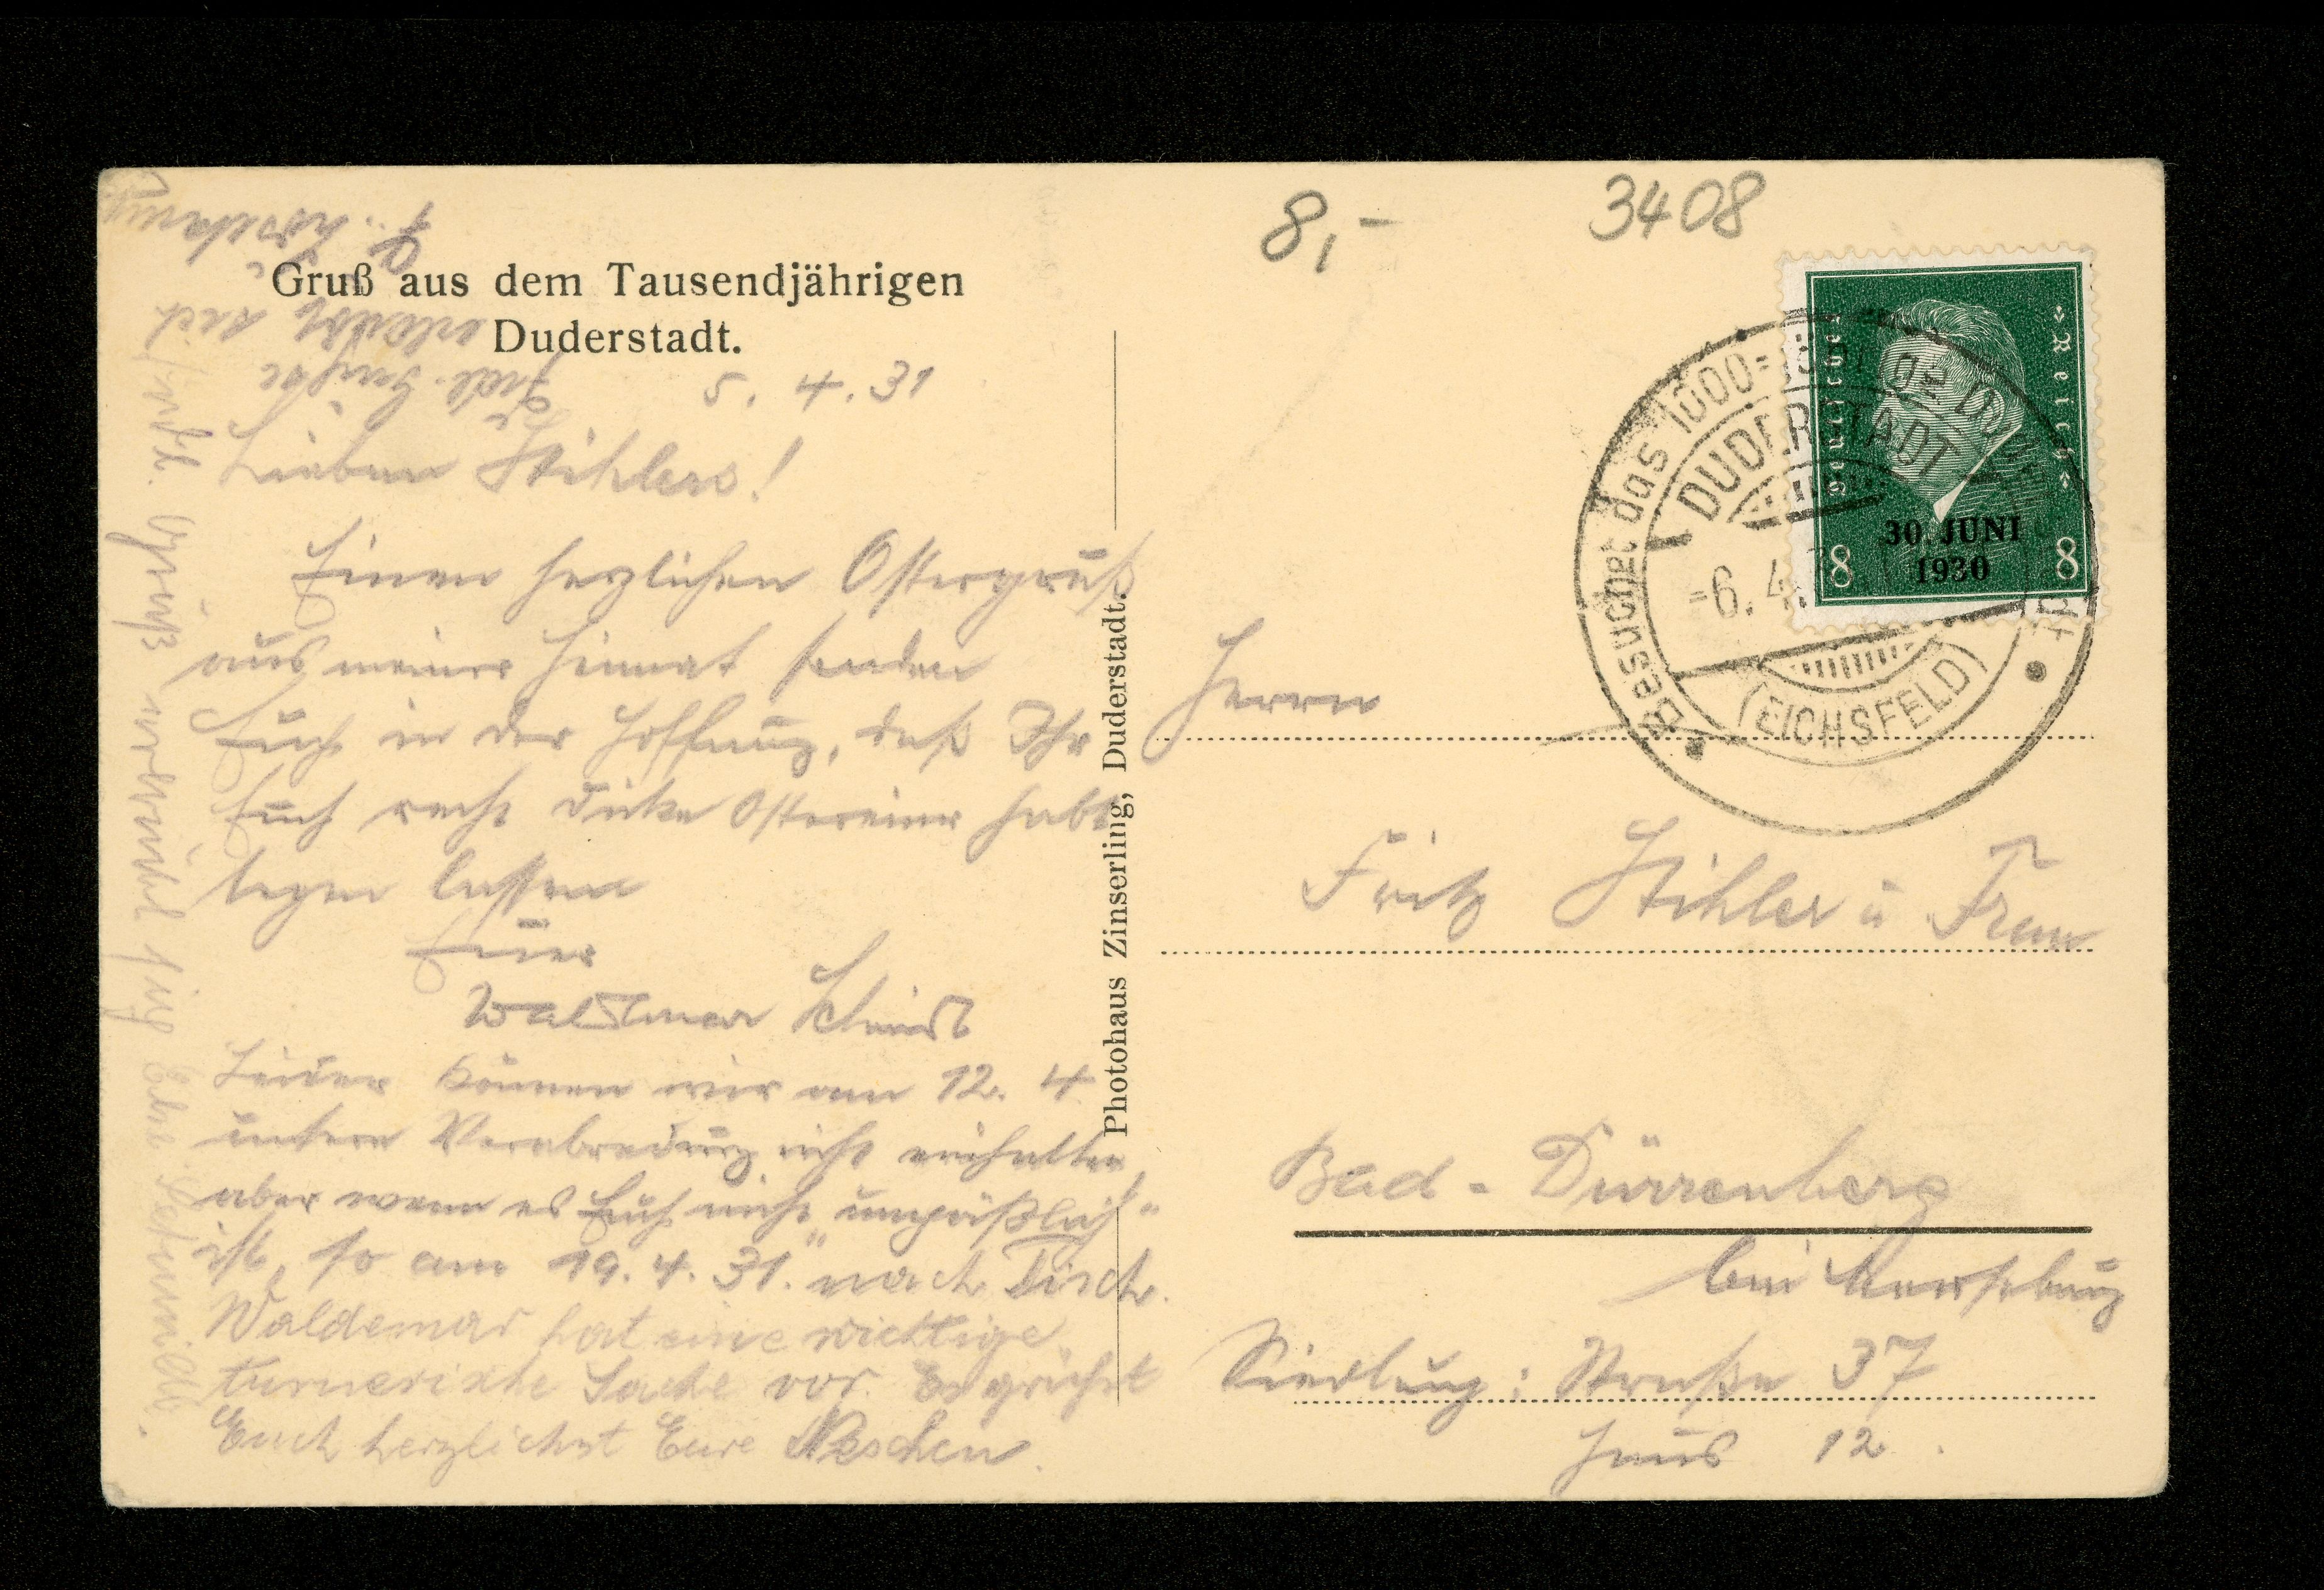 8,-
3408
Gruß aus dem Tausendjährigen
Duderstadt.
5. 4. 31
Lieben Stihlers!
Einen herzlichen Ostergruß
aus meiner Heimat senden
Euch in der Hoffnung, daß Ihr
Euch recht dicke Ostereier habt
legen lassen
Euer
Waldemar Schmidt
Leider können wir am 12. 4
unsere Verabredung nicht einhalten,
aber wenn es Euch nicht „unpäßlich"
ist, so am 19. 4. 31. nach Tisch.
Waldemar hat eine wichtige
turnerische Sache vor. Es grüßt
Euch herzlichst Eure
Photohaus Zinserling, Duderstadt.
Deutsches Reich
30. JUNI
1930
8 8
Besuchet das 1000-jährige Duderstadt
DUDERSTADT
-6. 4.
(EICHSFELD)
Herrn
Fritz Stihler u Frau
Bad-Dürrenberg
bei Merseburg
Siedlung: Straße 37
Haus 12.